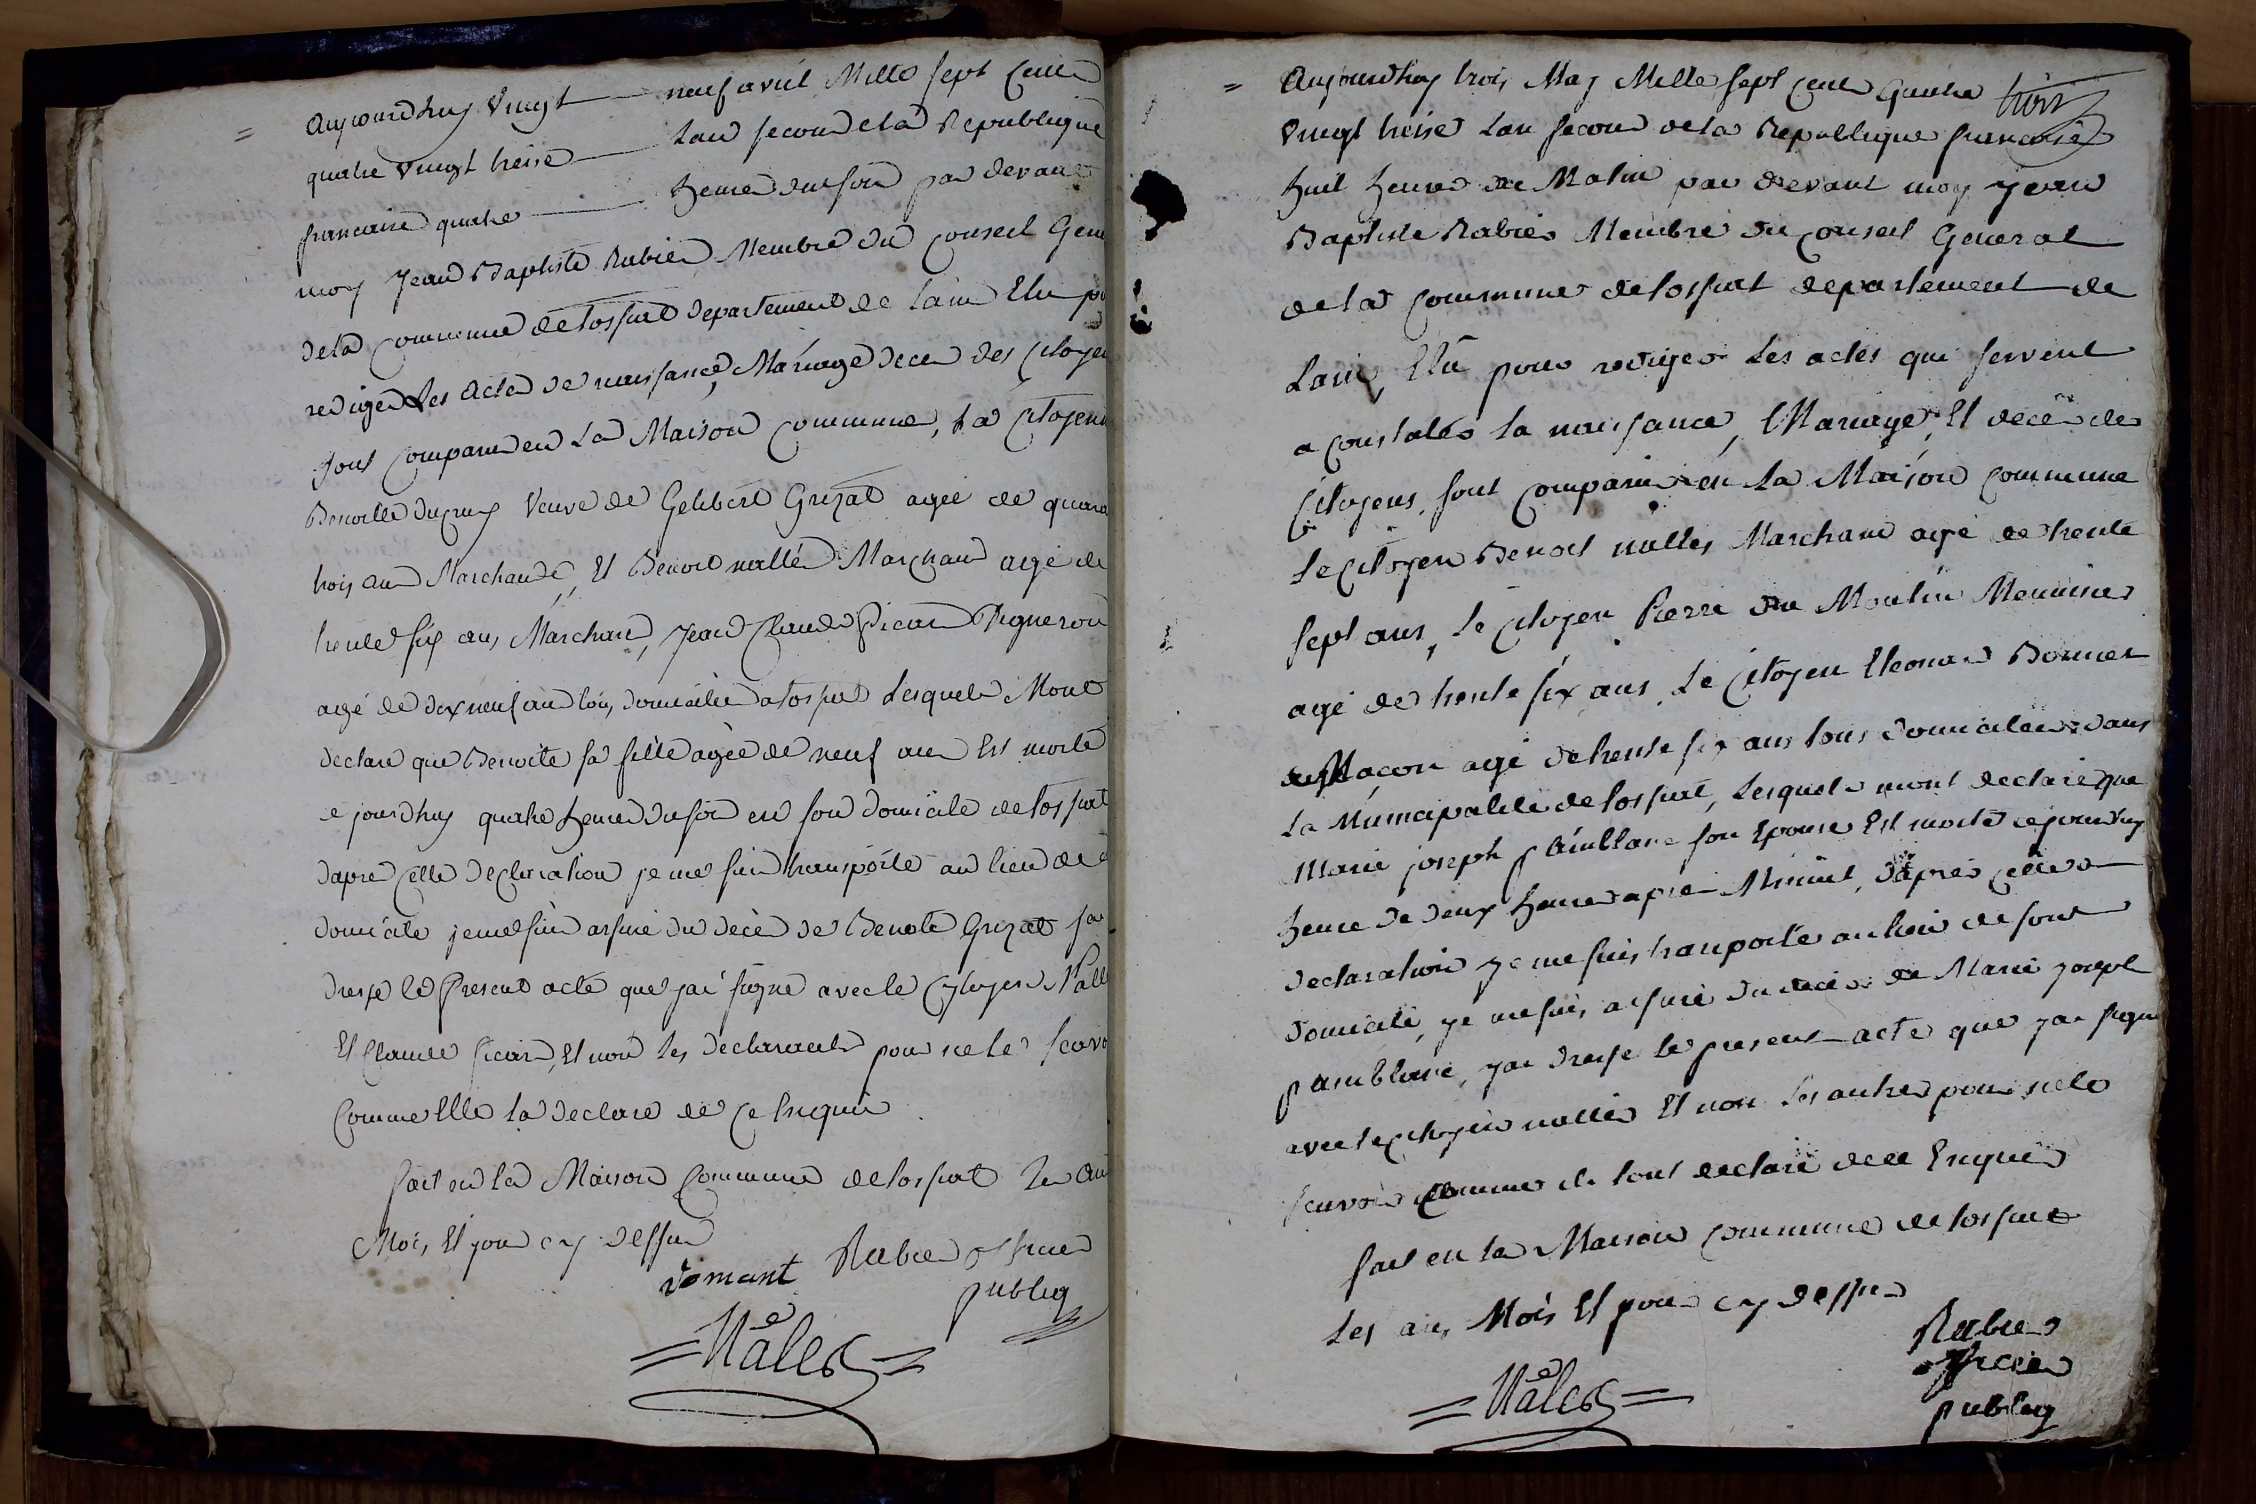 Aujourdhuy Vingt neuf avril Mille sept Cent
quatre Vingt treise Lan second de la Republique
francaise quatre heures du soir par devant
moy Jean Baptiste Rabier Membre du Conseil Gene
de la Commune de Fosfiat departement de Lain Elu po
rediger Les Actes de naissance, Mariage deces des Citoyen
sont Comparu en La Maison Commune, La Citoyenn
Benoitte Ducruy Veuve de Gelibert Grizat agée de quara
trois ans Marchande, Et Benoit nallés Marchand agé de
trente six ans Marchand, Jean Claude Picard Vigneron
agé de dix neuf ans tous domiciliés a Losfiat Lesquels Mont
declare que Benoite sa fille agée de neuf ans Est morte
ce jourdhuy quatre heures du soir en son domicile de Losfiat
dapres Cette declaration je me suis transporté au lieu de c
domicile je me suis assuré du décès de Benoite Grizat jai
dressé le Present acte que jai signé avec le Cytoyen Nall
Et Claude Picard, Et non Les declarants pour ne le scavo
Comme Elle la declare de Ce Enquis
fait en la Maison Commune de Losfiat Les An
Mois, Et jour cy dessus
Rabier officier
publiq
Nâlès
= Aujourdhuy trois May Mille sept Cent Quatre
Vingt treise Lan second de la Republique francaise
huit heures de Matin par devant moy jean
Baptiste Rabier Membre du Conseil General
de la Commune de Losfiat departement de
Lain, Elu pour rediger Les actes qui servent
a Constater la naissance, Mariage, Et deces des
Citoyens, sont Comparu en La Maison Commune
Le Citoyen Benoit nallés Marchand agé de trente
sept ans, Le Citoyen Pierre du Moulin Meunier
agé de trente six ans Le Citoyen Eleonard Bonnet
Maçon agé de trente six ans tous domiciliés dans
La Municipalité de Losfiat, Lesquels mont declaré que
Marie joseph Pamblanc son Epouse Est morte ce jourdhuy
heure de deux heures apres Minuit, dapres Cette
declaration je me suis transporté au lieu de sont
domicile, je me suis, assuré du deces de Marie joseph
pamblanc, jai dressé le present acte que jai signé
avec le Citoyen nallés Et non Les autres pour ne le
scavoir Comme ils lont declaré de ce Enquis
fait en la Maison Commune de Losfiat
Les an, Mois Et jour cy dessus
Rabier
officier
publiq
Nâlès